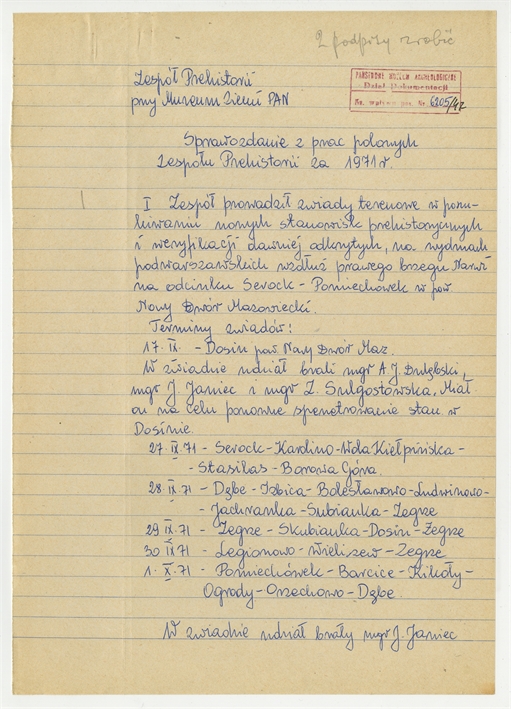 2 podpisy zrobić
Zespół Prehistorii
przy Muzeum Ziemi PAN
PAŃSTWOWE MUZEUM ARCHEOLOGICZNE
Dział Dokumentacji
Nr 6205/47
Sprawozdanie z prac polowych
Zespołu Prehistorii za 1971 r.
I Zespół prowadził zwiady terenowe w poszu-
kiwaniu nowych stanowisk prehistorycznych
i weryfikacji dawniej odkrytych, na wydmach
podwarszawskich wzdłuż prawego brzegu Narwi
na odcinku Serock - Pomiechówek w pow.
Nowy Dwór Mazowiecki.
Terminy zwiadów:
17. IX. - Dosin pow. Nowy Dwór Maz.
W zwiadzie udział brali mgr A. J. Dulębski,
mgr J. Janiec i mgr Z. Sulgostowska, Miał
on na celu ponowne spenetrowanie stan w
Dosinie.
27. IX. 71 - Serock - Karolino - Wola Kiełpińska -
- Stasilas - Borowa Góra.
28. IX. 71 - Dzbe - Izbica - Bolesławowo - Ludwinowo -
- Jachranka - Subianka - Zegrze
29 IX 71 - Zegrze - Skubianka - Dosin - Zegrze
30 IX 71 - Legionowo - Wieliszew - Zegrze
1. X. 71 - Pomiechówek - Barcice - Kikoły -
Ogrody - Orzechowo - Dzbe.
W zwiadzie udział brały mgr J. Janiec